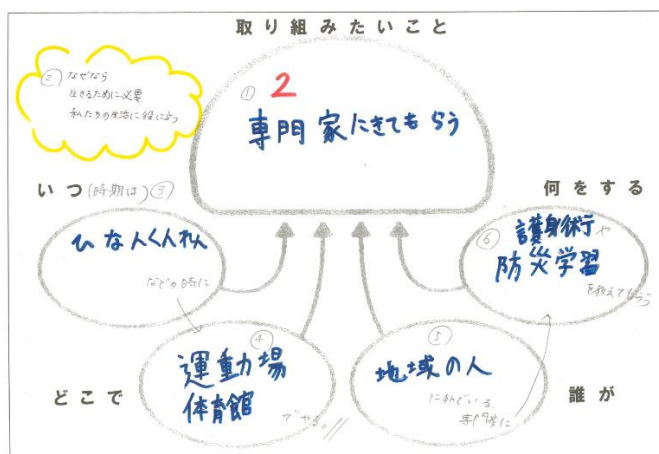 取り組みたいこと
② なぜなら
生きるために必要
私たちの生活に役に立つ
① 2
専門家にきてもらう
いつ(時期は)③
ひなんくんれん
などの時に
何をする
⑥ 護身術や
防災学習
を教えてもらう
どこで
④
運動場
体育館
でやる。
⑤
地域の人
に住んでいる
専門家に
誰が